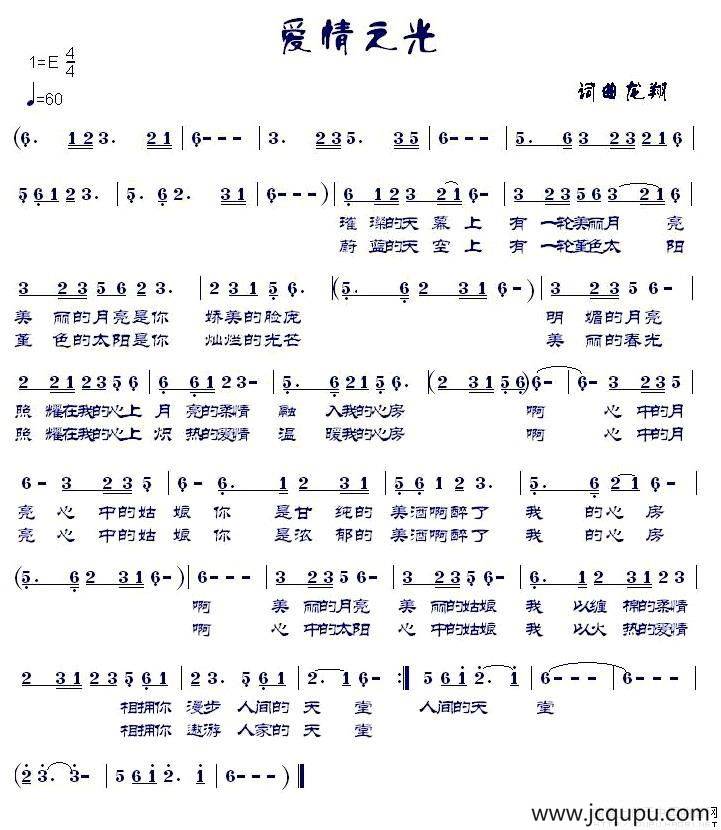 爱情之光
1=E 4/4
♩=60
词曲 龙翔
(6. 123. 21 | 6--- | 3. 235. 35 | 6--- | 5. 63 23216 |
56123. | 5. 62. 31 | 6---) | 6 123 216- | 3 2356 3216 |
璀 璨的天 幕 上 有 一轮美丽月 亮
蔚 蓝的天 空 上 有 一轮堇色太 阳
3 235623. | 2315 6. | (5. 62 316-) | 3 23563 |
美 丽的月亮是你 娇美的脸庞 明 媚的月亮
堇 色的太阳是你 灿烂的光芒 美 丽的春光
2 212356 | 6 6123- | 5. 62156. | (23 12356) | 6- 3. 235 |
照 耀在我的心上 月 亮的柔情 融 入我的心房 啊 心 中的月
照 耀在我的心上 炽 热的爱情 温 暖我的心房 啊 心 中的月
6- 3 235 | 6- 6. 12 | 3 231 2123 | 5. 621 6- |
亮 心 中的姑 娘 你 是甘 纯的 美酒啊醉了 我 的 心 房
亮 心 中的姑 娘 你 是浓 郁的 美酒啊醉了 我 的 心 房
(5. 62 316-) | 6--- | 3 23556- | 3 23556- | 6. 123123 |
啊 美 丽的月亮 美 丽的姑娘 我 以缠 棉的柔情
啊 心 中的太阳 心 中的姑娘 我 以火 热的爱情
2 31 1235 6 | 23. 5615 | 2. 1 6- :|| 5612. 1 | 6--- | 6--- |
相拥你 漫步 人间的 天 堂 人间的天 堂
相拥你 遨游 人家的 天 堂
(23. 3- | 5612. 2 | 6---) ||
www.jcqupu.com